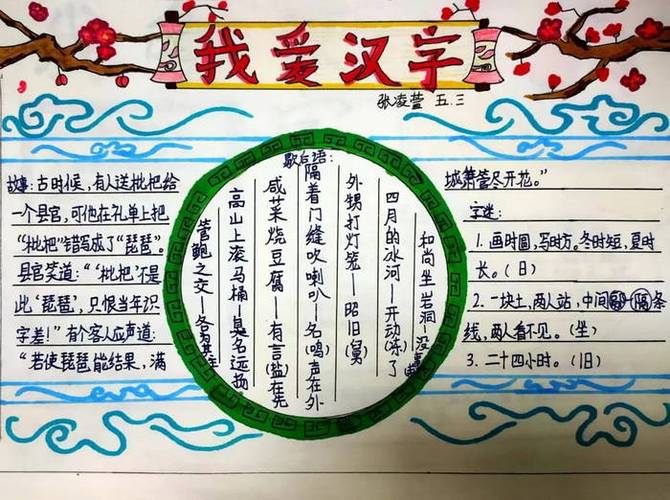 我爱汉字
张凌萱 五.三
故事:古时候,有人送枇杷给
一个县官,可他在礼单上把
“枇杷”错写成了“琵琶”。
县官笑道:“‘枇杷’不是
此‘琵琶’,只恨当年识
字差!”有个客人应声道:
“若使琵琶能结果,满
歇后语:
管鲍之交—各为其主
高山上滚马桶—臭名远扬
咸菜烧豆腐—有言(盐)在先
隔着门缝吹喇叭—名(鸣)声在外
外甥打灯笼—昭旧(舅)
四月的冰河—开动(冻)了
和尚坐岩洞—没
城箫管尽开花。”
字迷:
1. 画时圆,写时方。冬时短,夏时
长。(日)
2. 一块土,两人站,中间隔条
线,两人看不见。(坐)
3. 二十四小时。(旧)